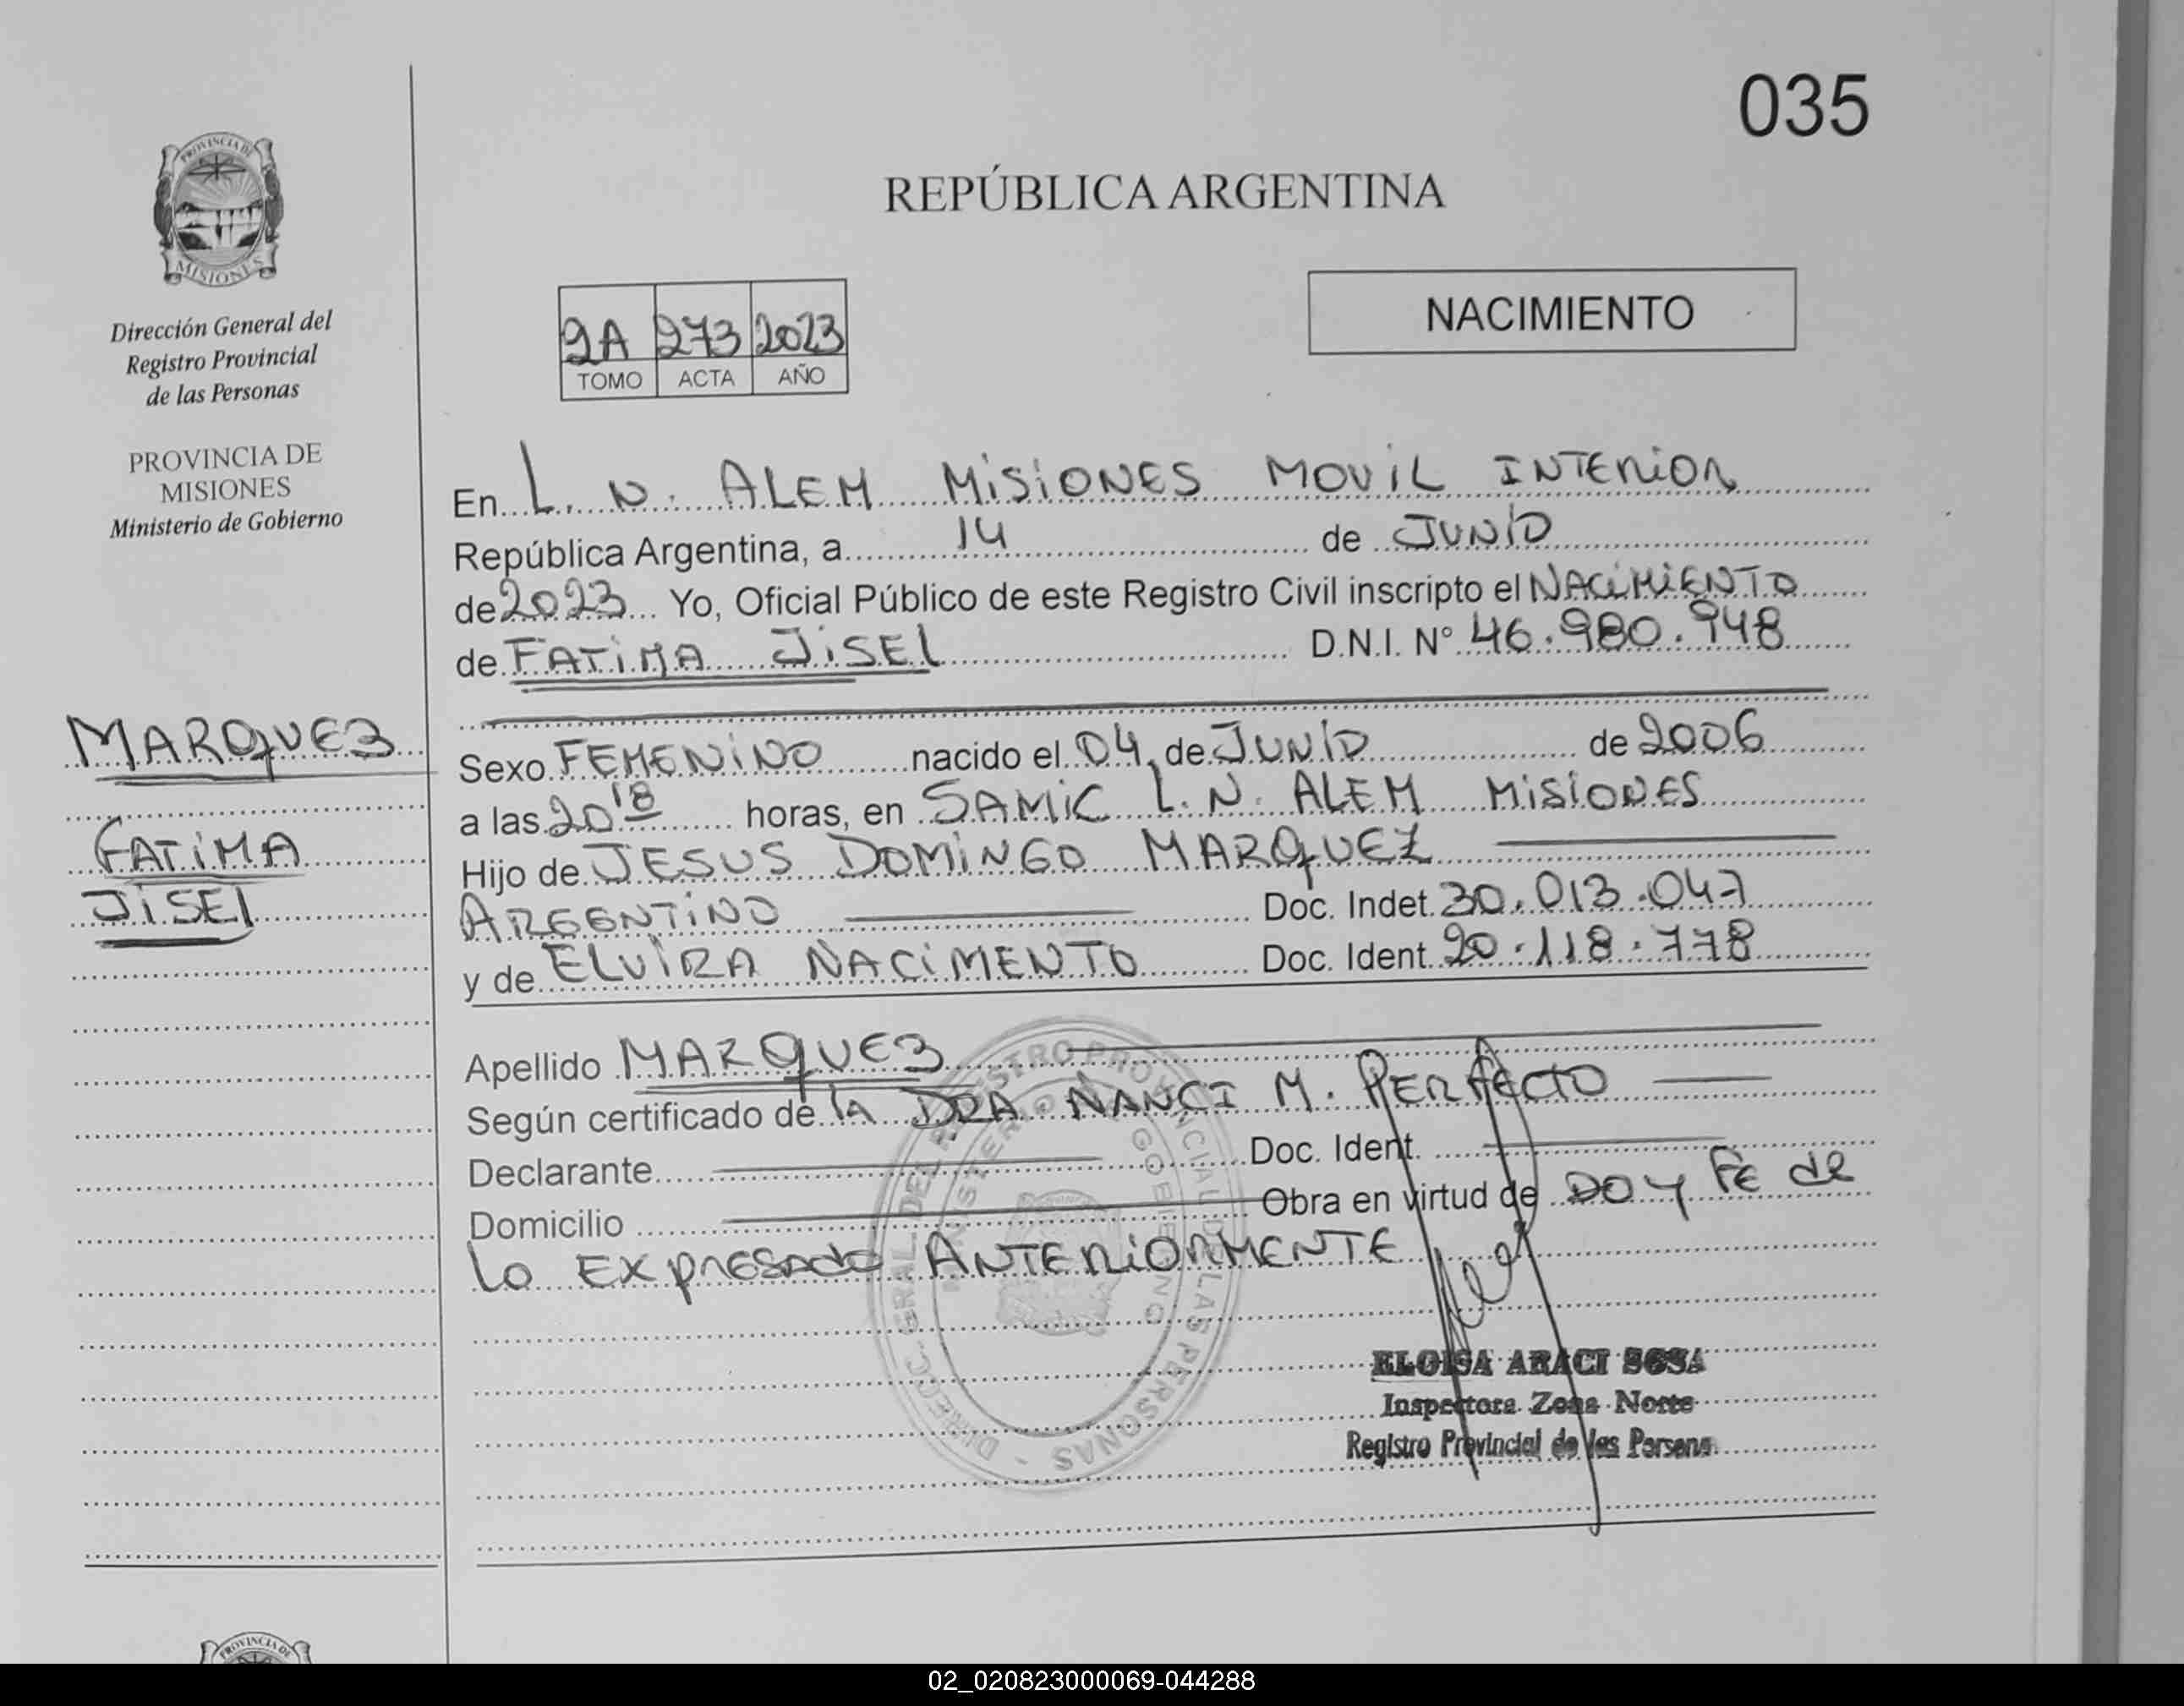 035
PROVINCIA DE
MISIONES
REPÚBLICA ARGENTINA
Dirección General del
Registro Provincial
de las Personas
PROVINCIA DE
MISIONES
Ministerio de Gobierno
2A 273 2023
TOMO ACTA AÑO
NACIMIENTO
En L. N. ALEM MISIONES MOVIL INTERIOR
República Argentina, a 14 de JUNIO
de 2023 Yo, Oficial Público de este Registro Civil inscripto el NACIMIENTO
de FATIMA JISEL D.N.I. N° 46.980.948
MARQUEZ
FATIMA
JISEL
Sexo FEMENINO nacido el 04 de JUNIO de 2006
a las 20 18 horas, en SAMIC L. N. ALEM MISIONES
Hijo de JESUS DOMINGO MARQUEZ
ARGENTINO Doc. Indet. 30.013.047
y de ELVIRA NACIMENTO Doc. Ident. 20.118.778
Apellido MARQUEZ
Según certificado de la DRA NANCI M. PERFECTO
Declarante Doc. Ident.
Domicilio Obra en virtud de DOY FE de
Lo EXPRESADO ANTERIORMENTE
DIRECC. GRAL DEL REGISTRO PROVINCIAL DE LAS PERSONAS
MINISTERIO DE GOBIERNO
ELOISA ARACI SOSA
Inspectora Zona Norte
Registro Provincial de las Persona
PROVINCIA DE
02_020823000069-044288